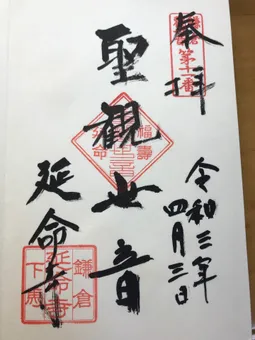 奉拝
第十一番
令和三年
四月三日
聖観世音
福壽
延命
延命寺
鎌倉
延命寺
下馬